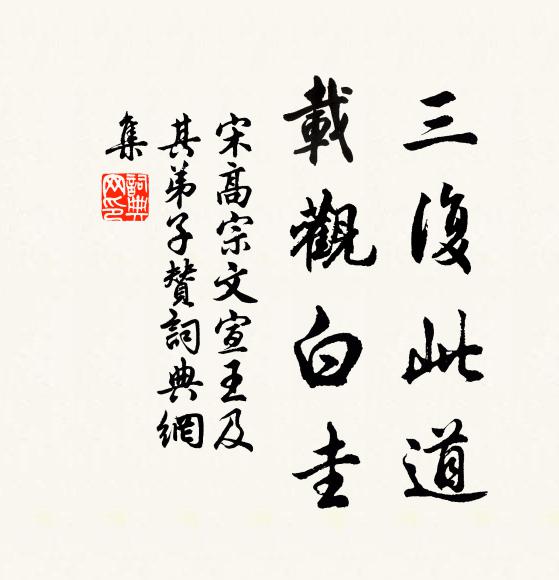 三復此道
載觀白圭
宋高宗文宣王及
其弟子贊詞典網
集
詞典
网印